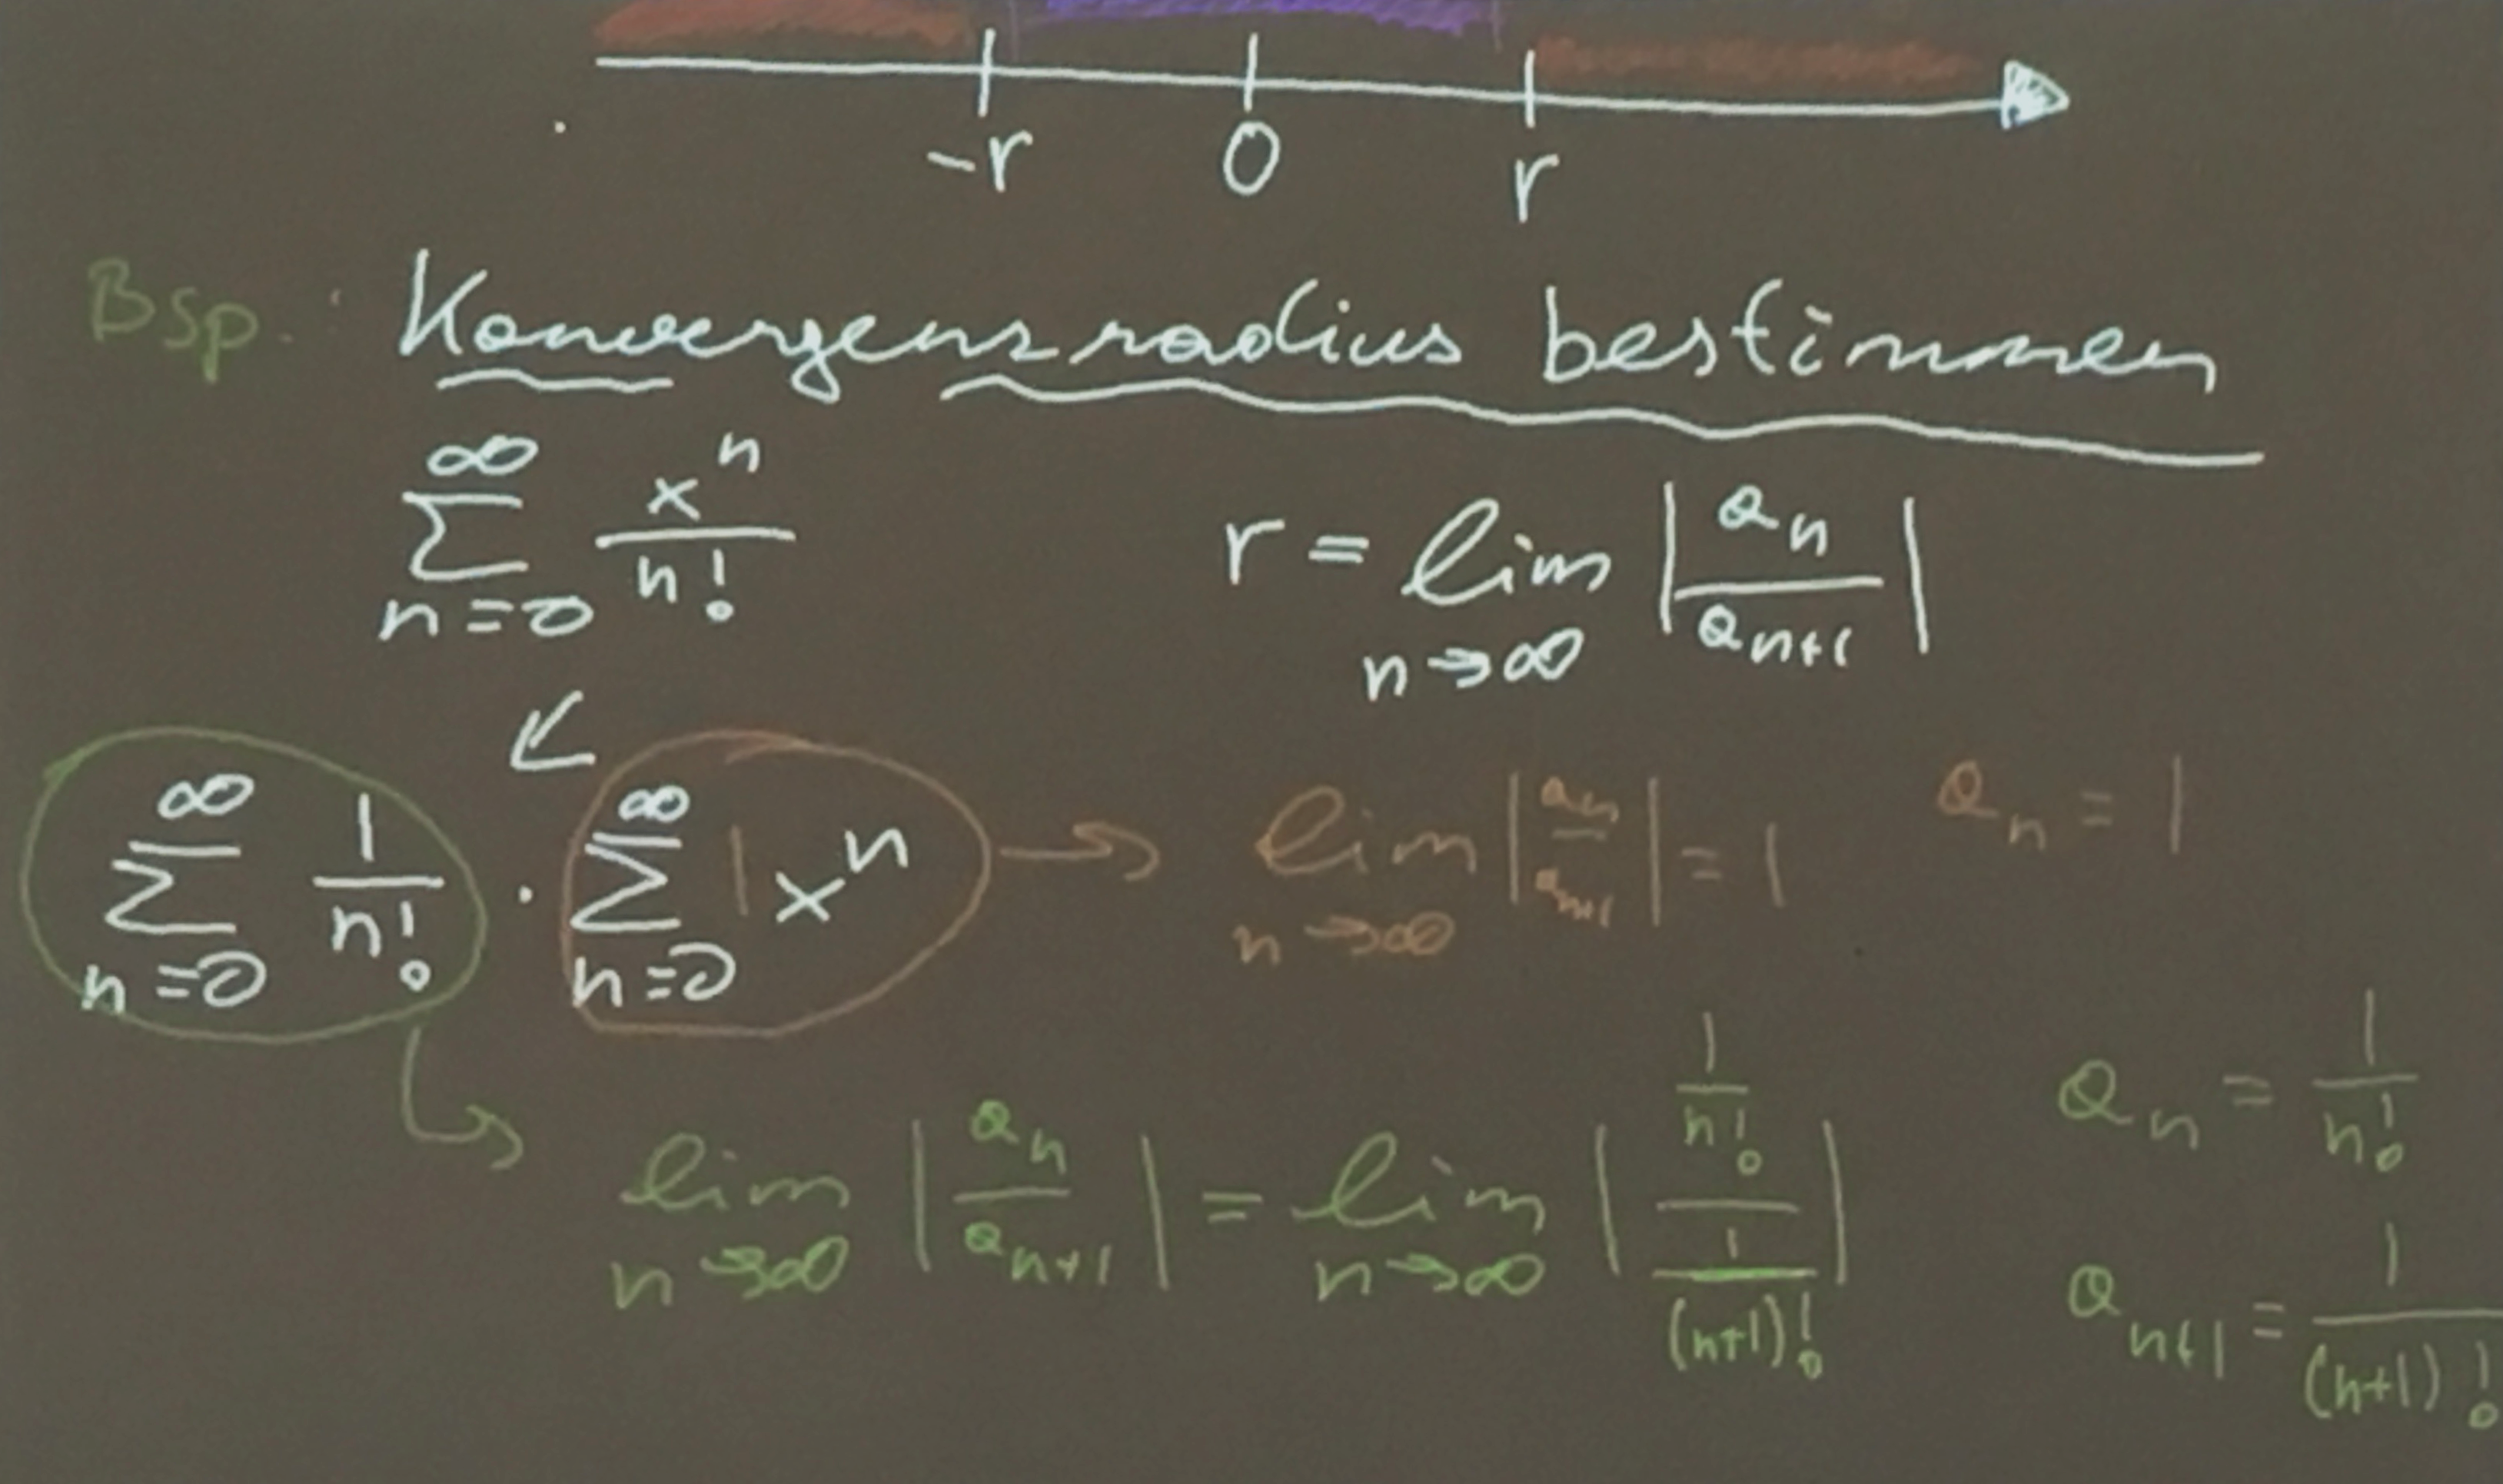 -r 0 r
Bsp.: Konvergenzradius bestimmen
∞ ∑ n=0 xⁿ/n! r = lim n→∞ |aₙ/aₙ₊₁|
∞ ∑ n=0 1/n! · ∞ ∑ n=0 1 xⁿ → lim n→∞ |aₙ/aₙ₊₁| = 1 aₙ = 1
lim n→∞ |aₙ/aₙ₊₁| = lim n→∞ |(1/n!)/(1/(n+1)!)| aₙ = 1/n!
aₙ₊₁ = 1/(n+1)!